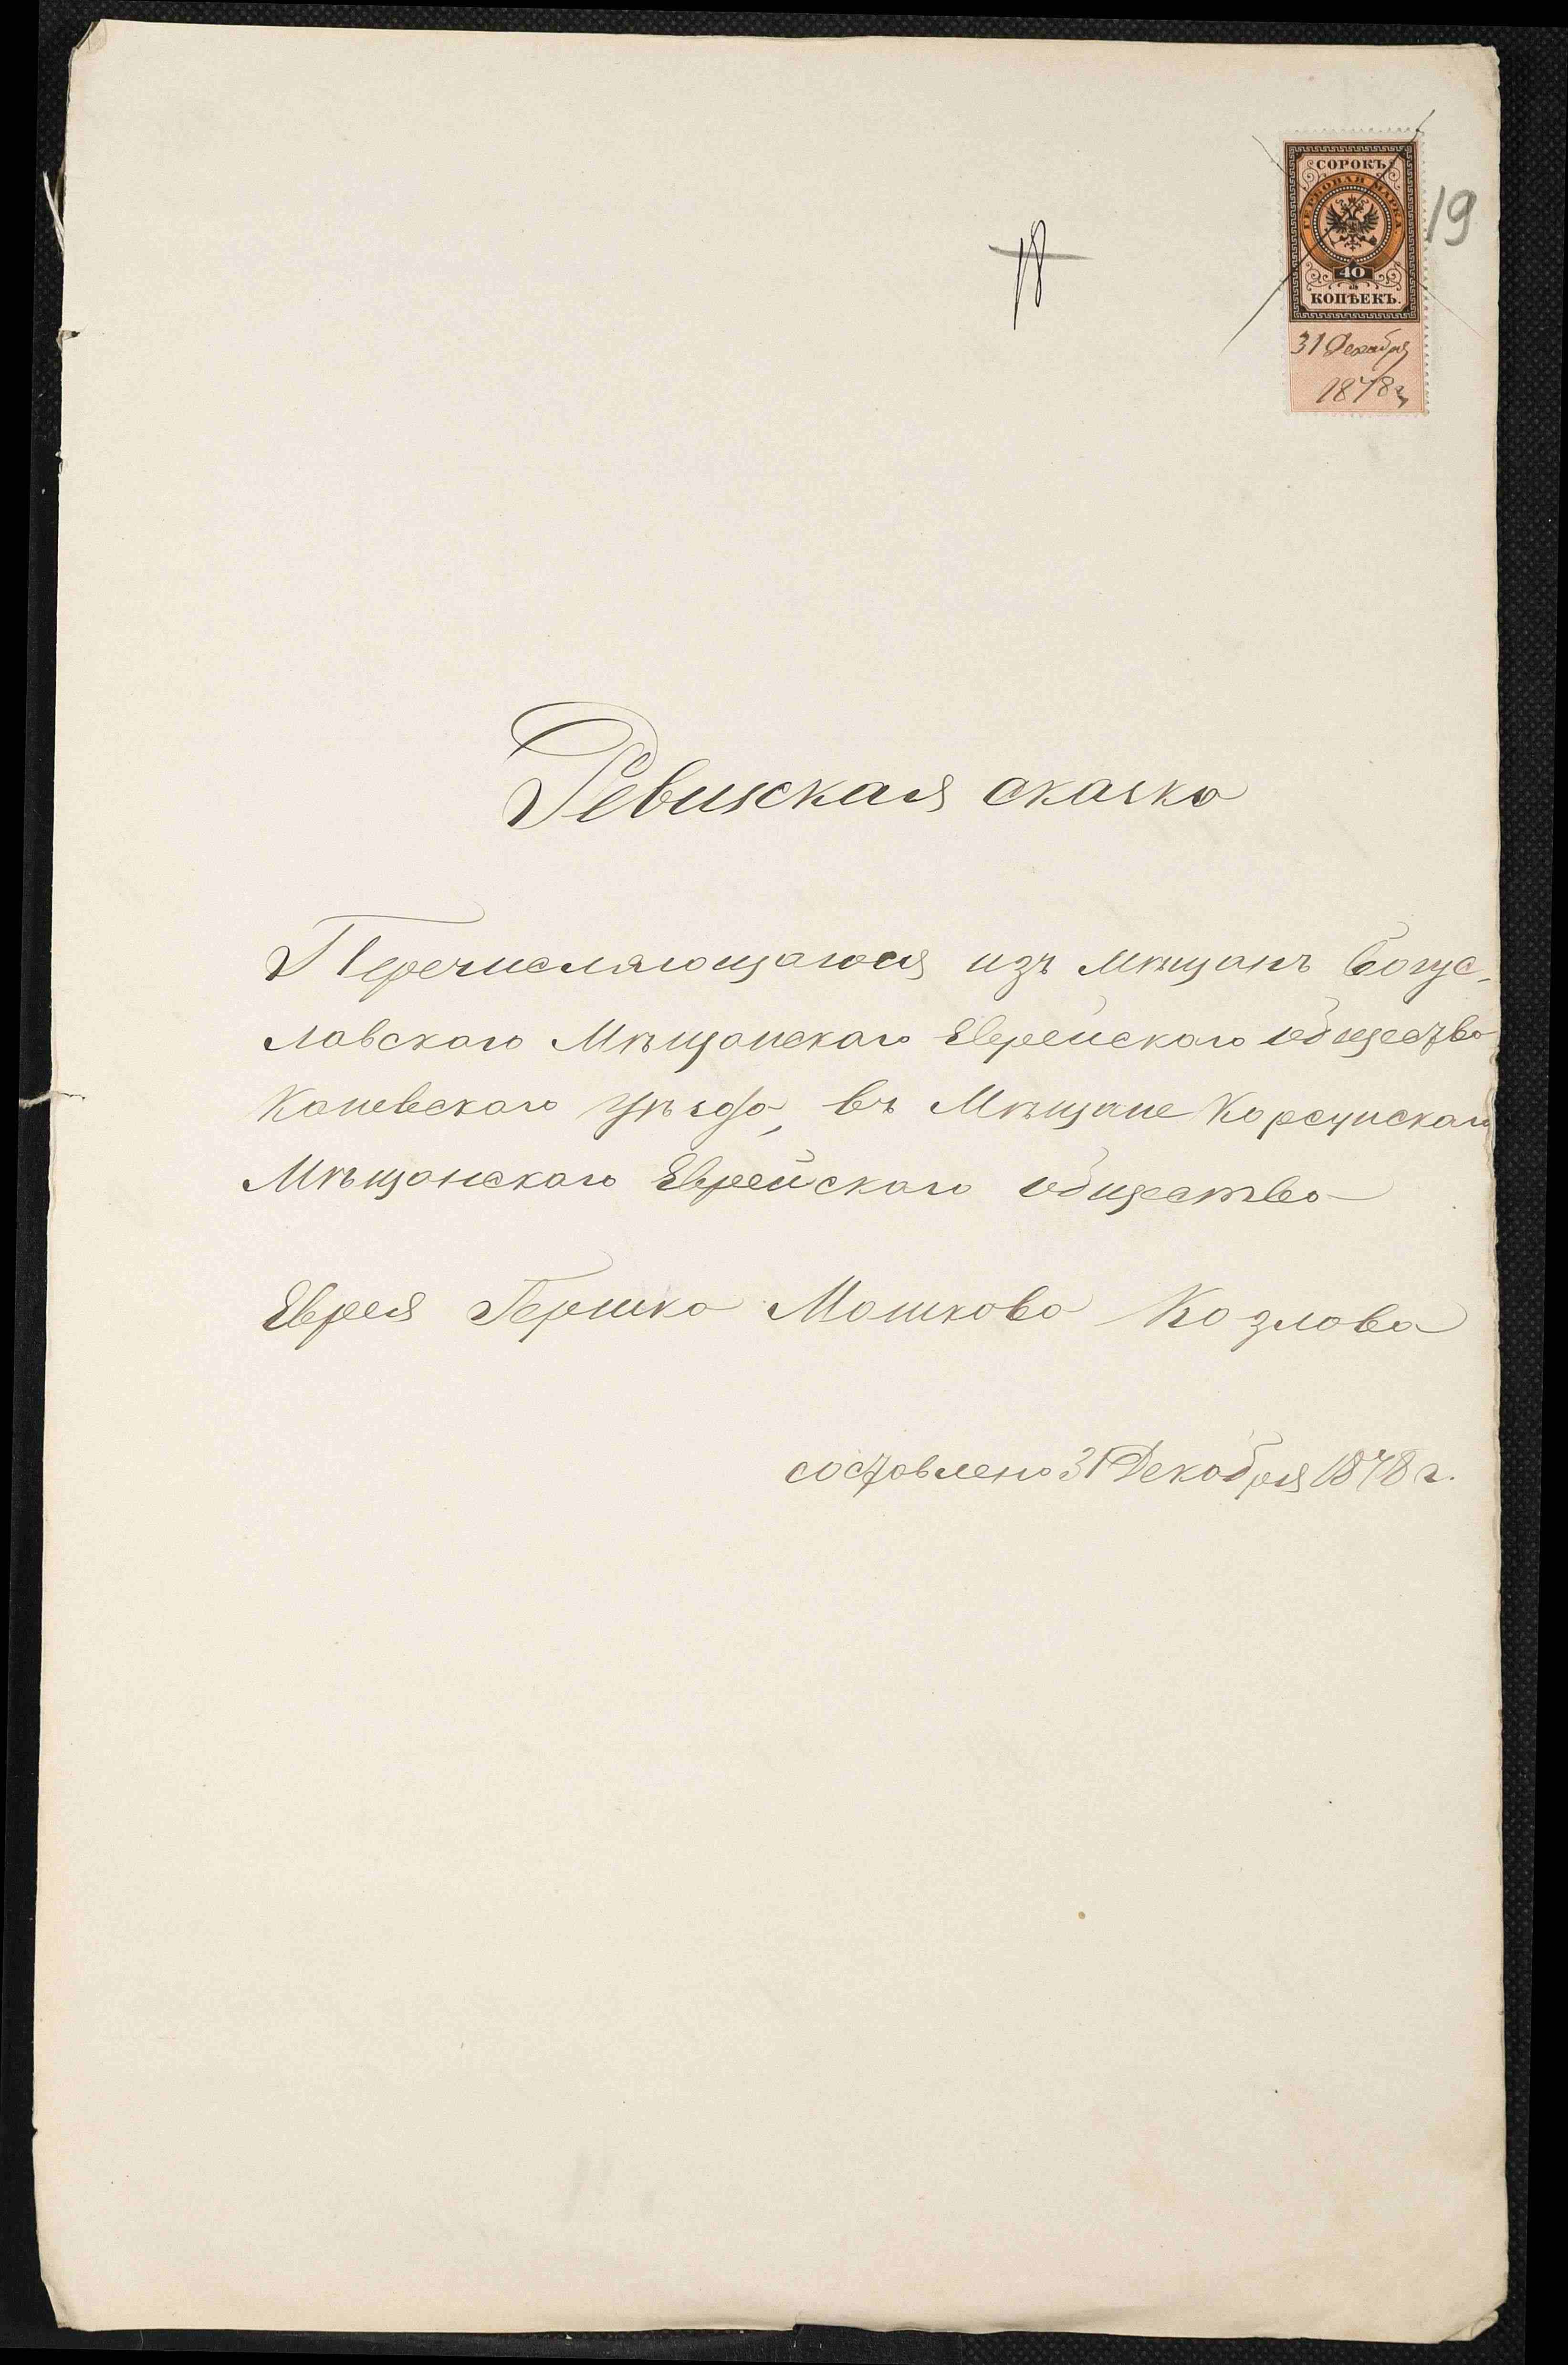 СОРОКЪ
ГЕРБОВАЯ МАРКА
40
КОПѢЕКЪ.
31 Декабря
1878 г
19
18
Ревизская сказка
Перечисляющагося изъ мѣщанъ Богус-
лавского Мѣщанскаго Еврейскаго общества
Каневскаго уѣзда, въ Мѣщане Корсунскаго
Мѣщанскаго Еврейскаго общества
Еврея Гершка Мошкова Козлова
составлено 31 Декабря 1878 г.